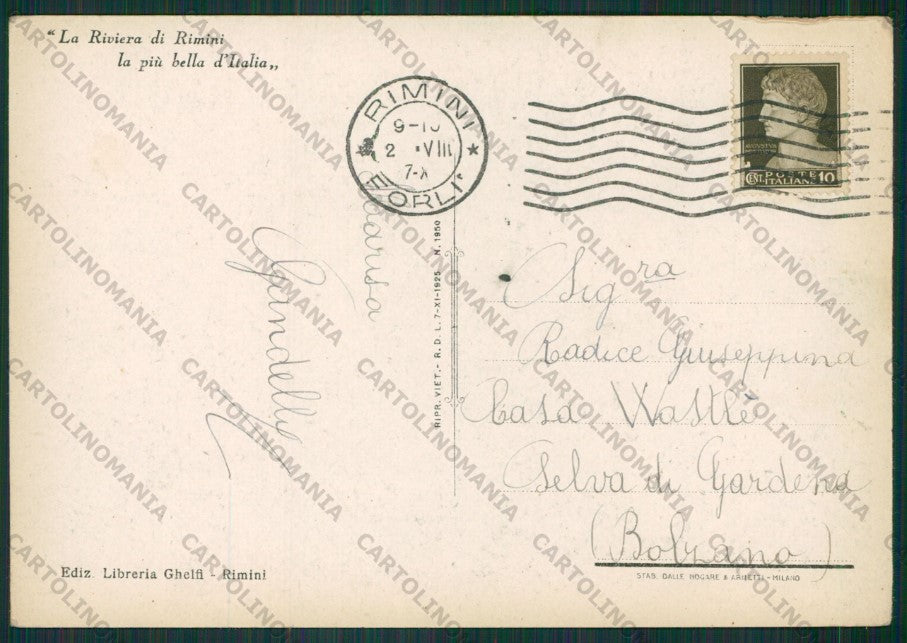 “La Riviera di Rimini
la più bella d'Italia„
RIMINI
9-10
2 VIII
7-X
FORLI'
POSTE
CENT. ITALIANE 10
Gardella
RIPR. VIET. - R. D. L. 7-XI-1925 N. 1950
Sig.ra
Radice Giuseppina
Casa Wastlé
Selva di Gardena
(Bolzano)
Ediz. Libreria Ghelfi - Rimini
STAB. DALLE NOGARE & ARMETTI - MILANO
CARTOLINOMANIA